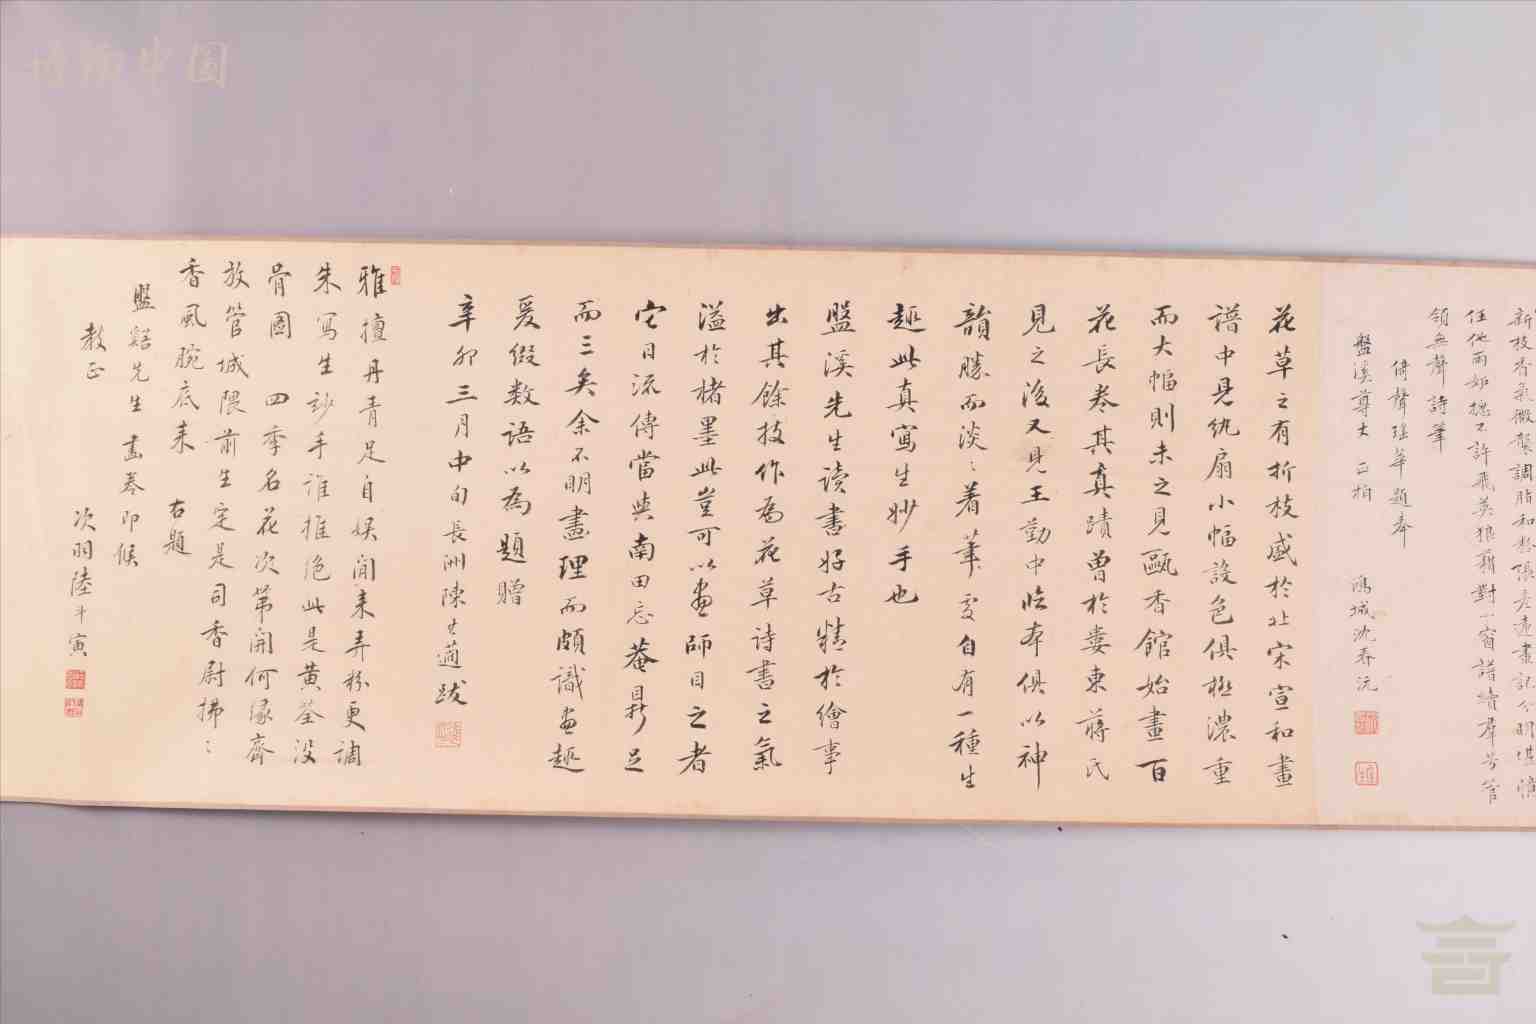 新枝香氣微襲調脂和粉張老遠畫記分明堪憎
任他雨妬摠不許飛英狼藉對一窗譜續群芳管
領無聲詩筆
倚聲瑤華題奉
盤溪尊丈 正拍 鴻城沈春沅
花草之有折枝盛於北宋宣和畫
譜中見紈扇小幅設色俱極濃重
而大幅則未之見甌香館始畫百
花長卷其真蹟曾於婁東蔣氏
見之後又見王勤中臨本俱以神
韻勝而淡〻著筆處自有一種生
趣此真寫生妙手也
盤溪先生讀書好古精於繪事
出其餘技作為花草詩書之氣
溢於楮墨此豈可以畫師目之者
它日流傳當與南田忘菴鼎足
而三矣余不明畫理而頗識畫趣
爰綴数語以為題贈
辛卯三月中旬長洲陳 適跋
雅擅丹青足自娛閒來弄粉更調
朱寫生妙手誰推絕此是黃荃没
骨圖 四季名花次第開何緣齊
放管城隈前生定是司香尉拂〻
香風腕底来 右題
盤谿先生畫卷即候
教正 次羽陸斗寅
博物中国